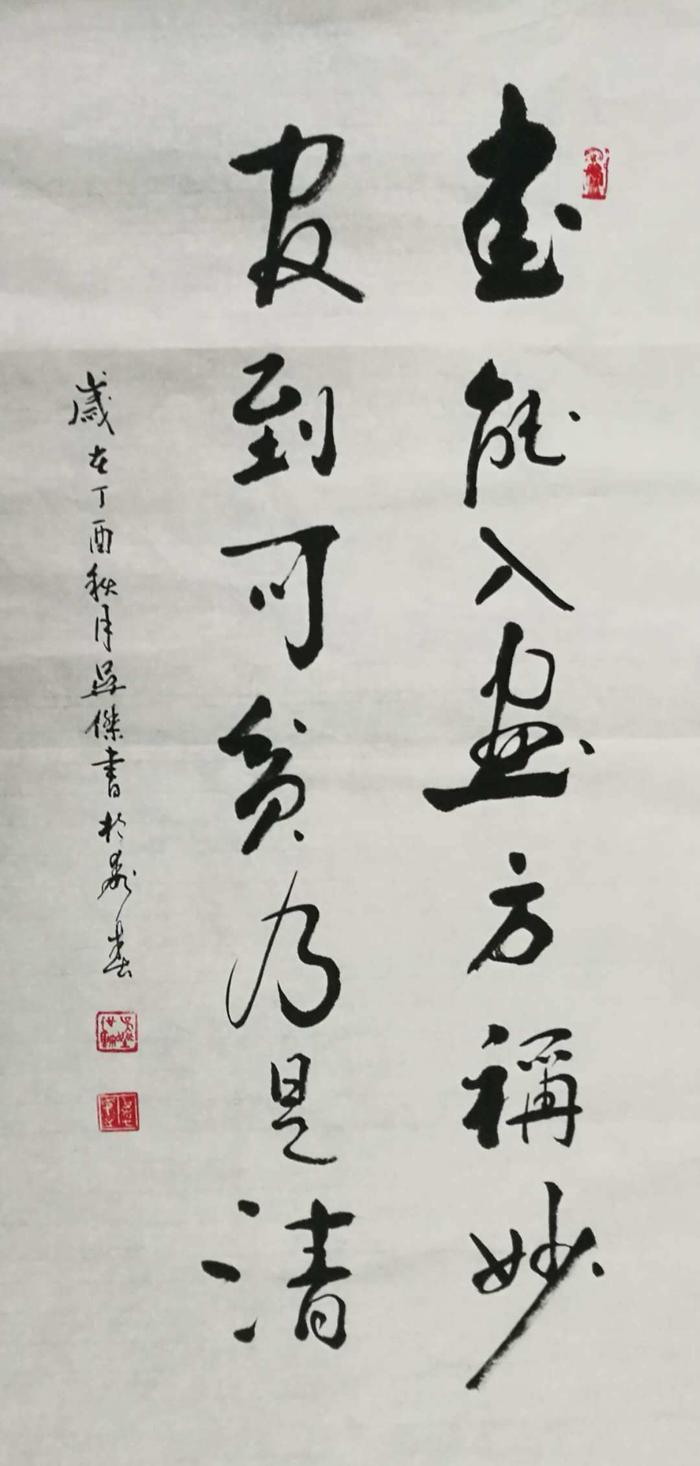 書能入畫方稱妙
官到可貧乃是清
歲在丁酉秋月吳傑書於長春